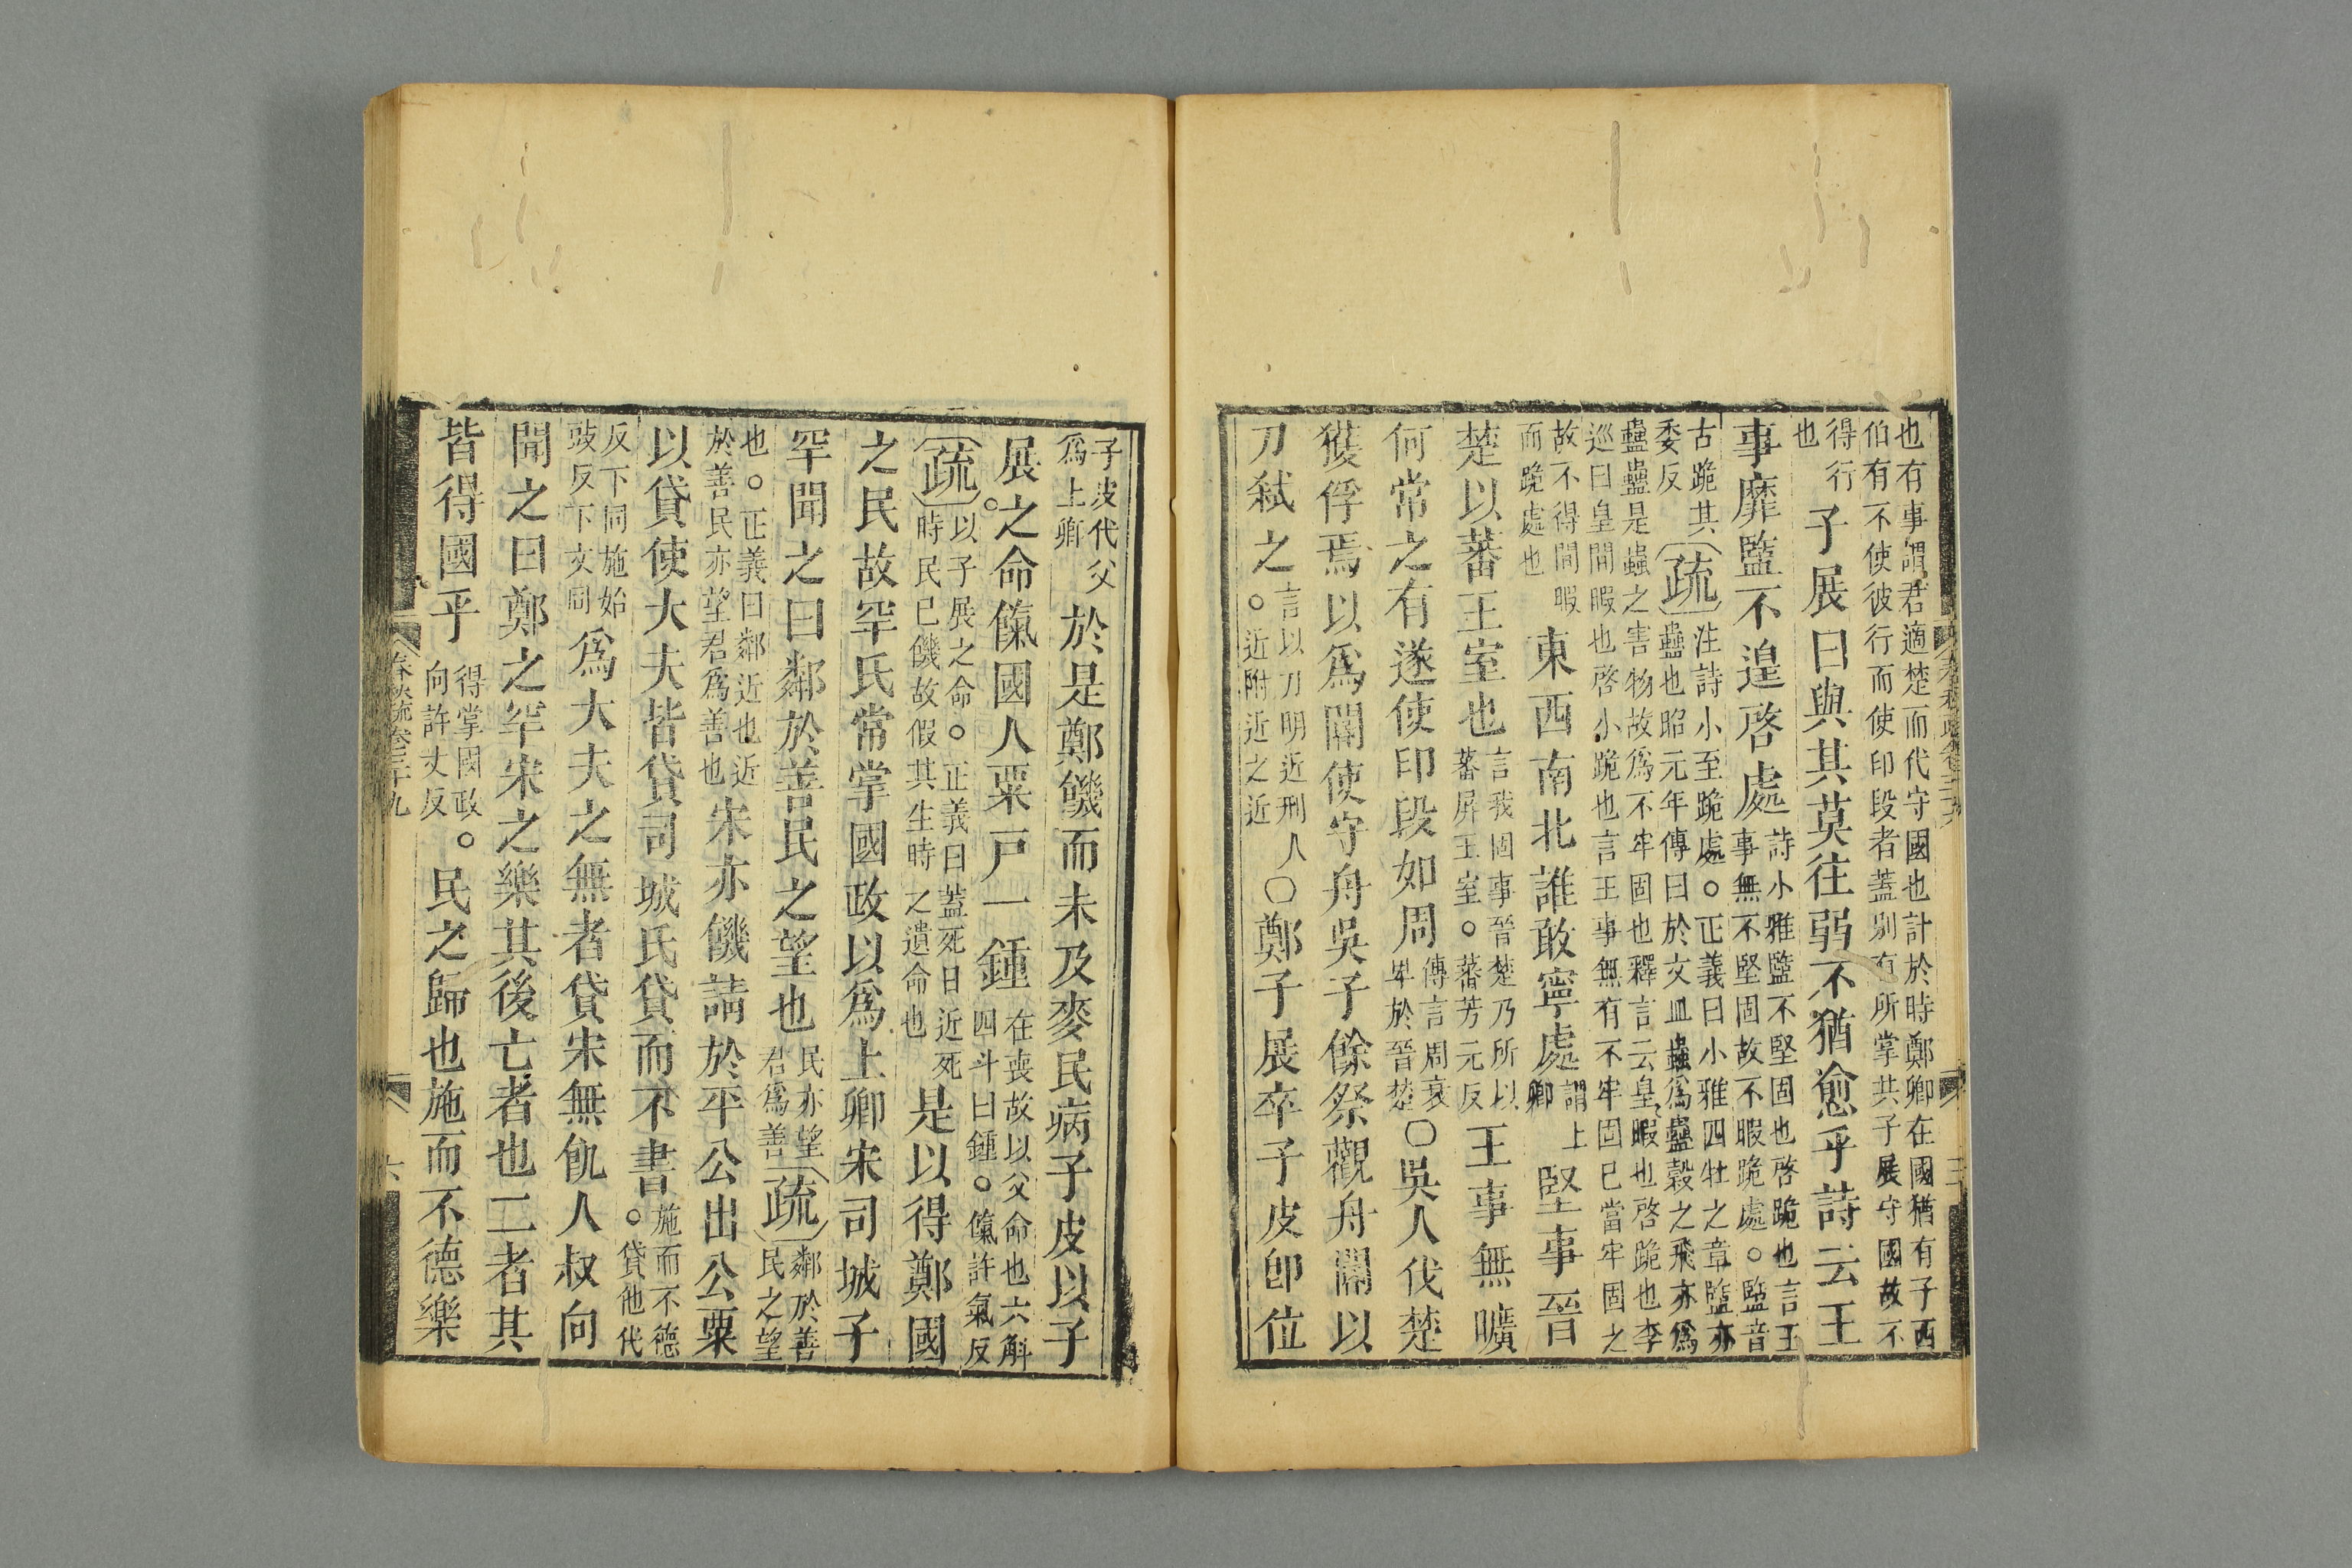 也有事謂君適楚而代守國也計於時鄭卿在國猶有子西
伯有不使彼行而使印段者蓋別有所掌共子展守國故不
得行
也
子展曰與其莫往弱不猶愈乎詩云王
事靡盬不遑啓處
詩小雅盬不堅固也啓跪也言王
事無不堅固故不暇跪處。盬音
古跪其
委反
疏
注詩小至跪處。正義曰小雅四牡之章盬亦
蠱也昭元年傳曰於文皿蟲爲蠱穀之飛亦爲
蠱蠱是蟲之害物故爲不牢固也釋言云皇暇也啓跪也李
巡曰皇閒暇也啓小跪也言王事無有不牢固已當牢固之
故不得閒暇
而跪處也
東西南北誰敢寧處
謂上
卿
堅事晉
楚以蕃王室也
言我固事晉楚乃所以
蕃屏王室。蕃芳元反
王事無曠
何常之有遂使印段如周
傳言周衰
卑於晉楚
〇吳人伐楚
獲俘焉以爲閽使守舟吳子餘祭觀舟閽以
刀弑之
言以刀明近刑人
。近附近之近
〇鄭子展卒子皮卽位
子皮代父
爲上卿
於是鄭饑而未及麥民病子皮以子
展之命餼國人粟戸一鍾
在喪故以父命也六斛
四斗曰鍾。餼許氣反
疏
以子展之命。正義曰蓋死日近死
時民已饑故假其生時之遺命也
是以得鄭國
之民故罕氏常掌國政以爲上卿宋司城子
罕聞之曰鄰於善民之望也
民亦望
君爲善
疏
鄰於善
民之望
也。正義曰鄰近也近
於善民亦望君爲善也
宋亦饑請於平公出公粟
以貸使大夫皆貸司城氏貸而不書
施而不德
。貸他代
反下同施始
豉反下文同
爲大夫之無者貸宋無飢人叔向
聞之曰鄭之罕宋之樂其後亡者也二者其
皆得國乎
得掌國政
向許丈反
。民之歸也施而不德樂
春秋疏卷三十九
六